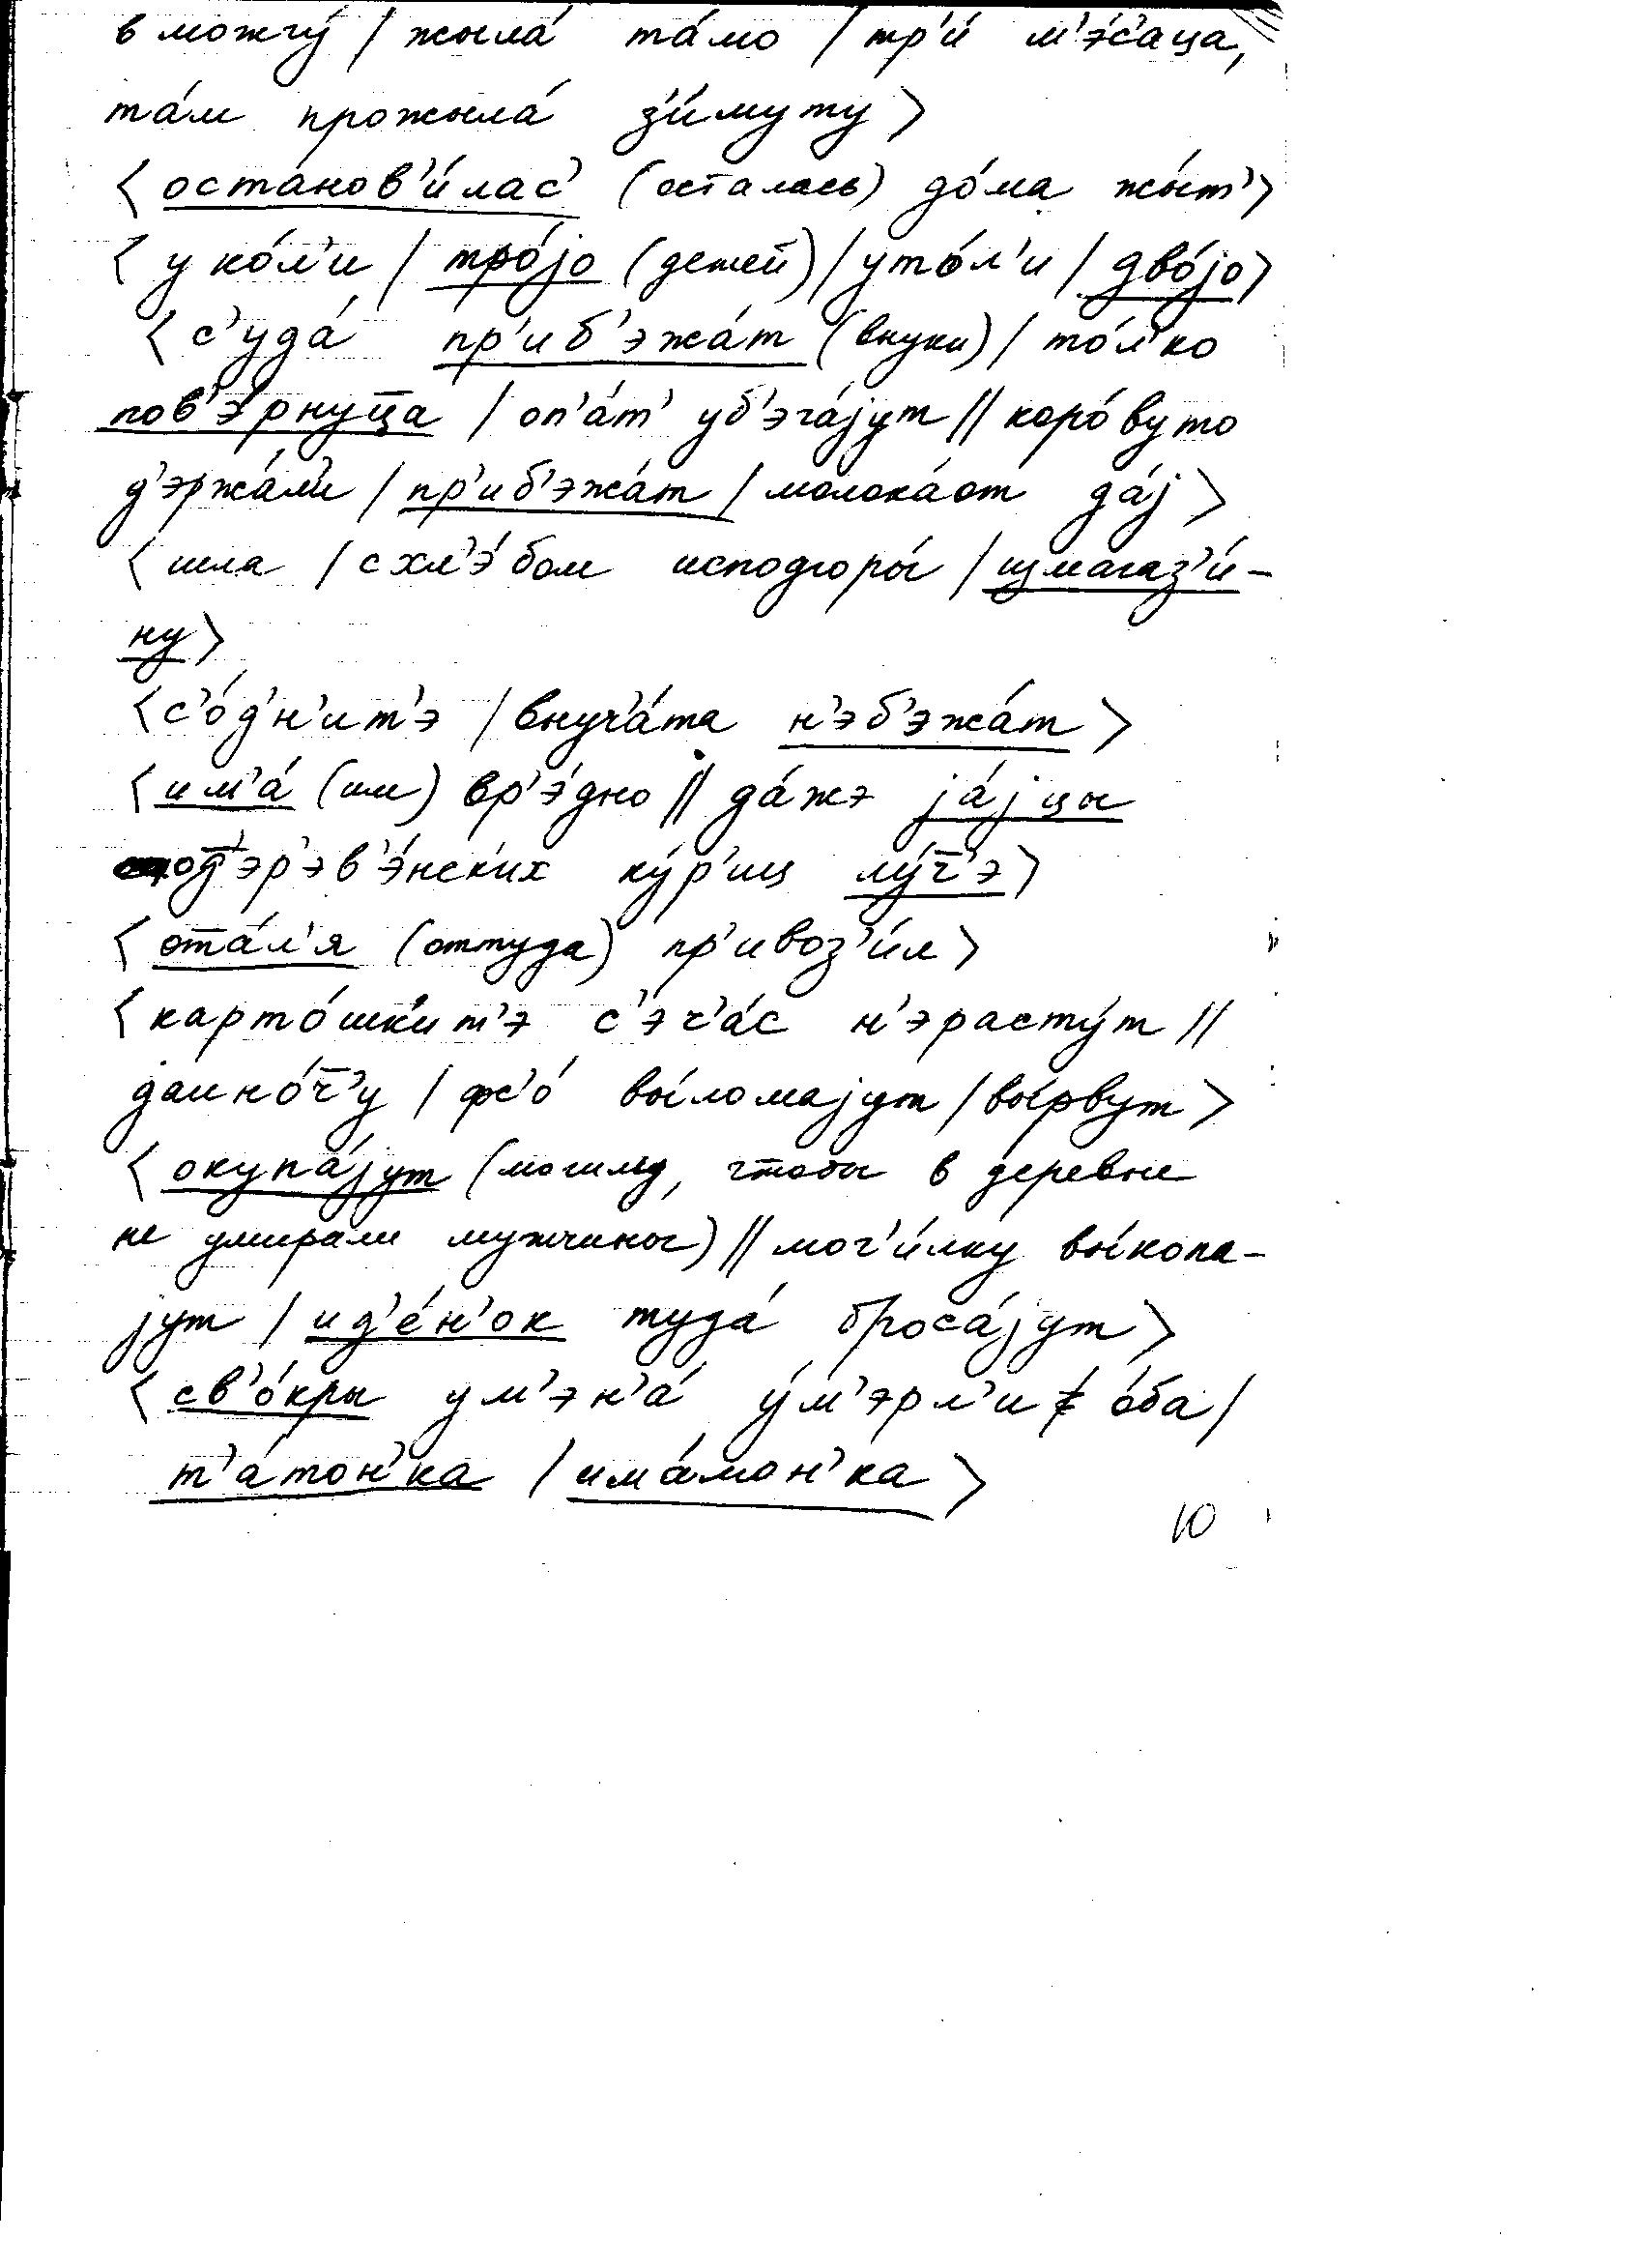 в можгу́ / жыла́ та́мо / тр'и́ м'э́с'аца,
та́м прожыла́ з'и́муту >
< останов'и́лас' (осталась) до́ма жы́т' >
< у ко́л'и / тро́jо (детей) / уто́л'и / дво́jо >
< с'уда́ пр'иб'эжа́т (внуки) / то́л'ко
пов'э́рнуц̅а / оп'а́т' уб'эга́jут // коро́вуто
д'эржа́л'и / пр'иб'эжа́т / молока́от да́j >
< шла / схл'э́бом исподгоры́ / измагаз'и́-
ну >
< с'о́д'н'ит'э / внуч'а́та н'эб'эжа́т >
< им'а́ (им) вр'э́дно // да́жэ jа́jцы
од'эр'эв'э́нск'их ку́р'иц лу́ч̅'э >
< от̅а́л'я (оттуда) пр'ивоз'и́л >
< карто́шк'ит'э с'эч'а́с н'эрасту́т //
даино́ч̅'у / фс'о́ вы́ломаjут / вы́рвут >
< окупа́jут (могилу, чтобы в деревне
не умирали мужчины) // мог'и́лку вы́копа-
jут / ид'е́н'ок туда́ броса́jут >
< св'о́кры ум'эн'а́ у́м'эрл'и о́ба /
т'а́тон'ка / има́мон'ка >
10